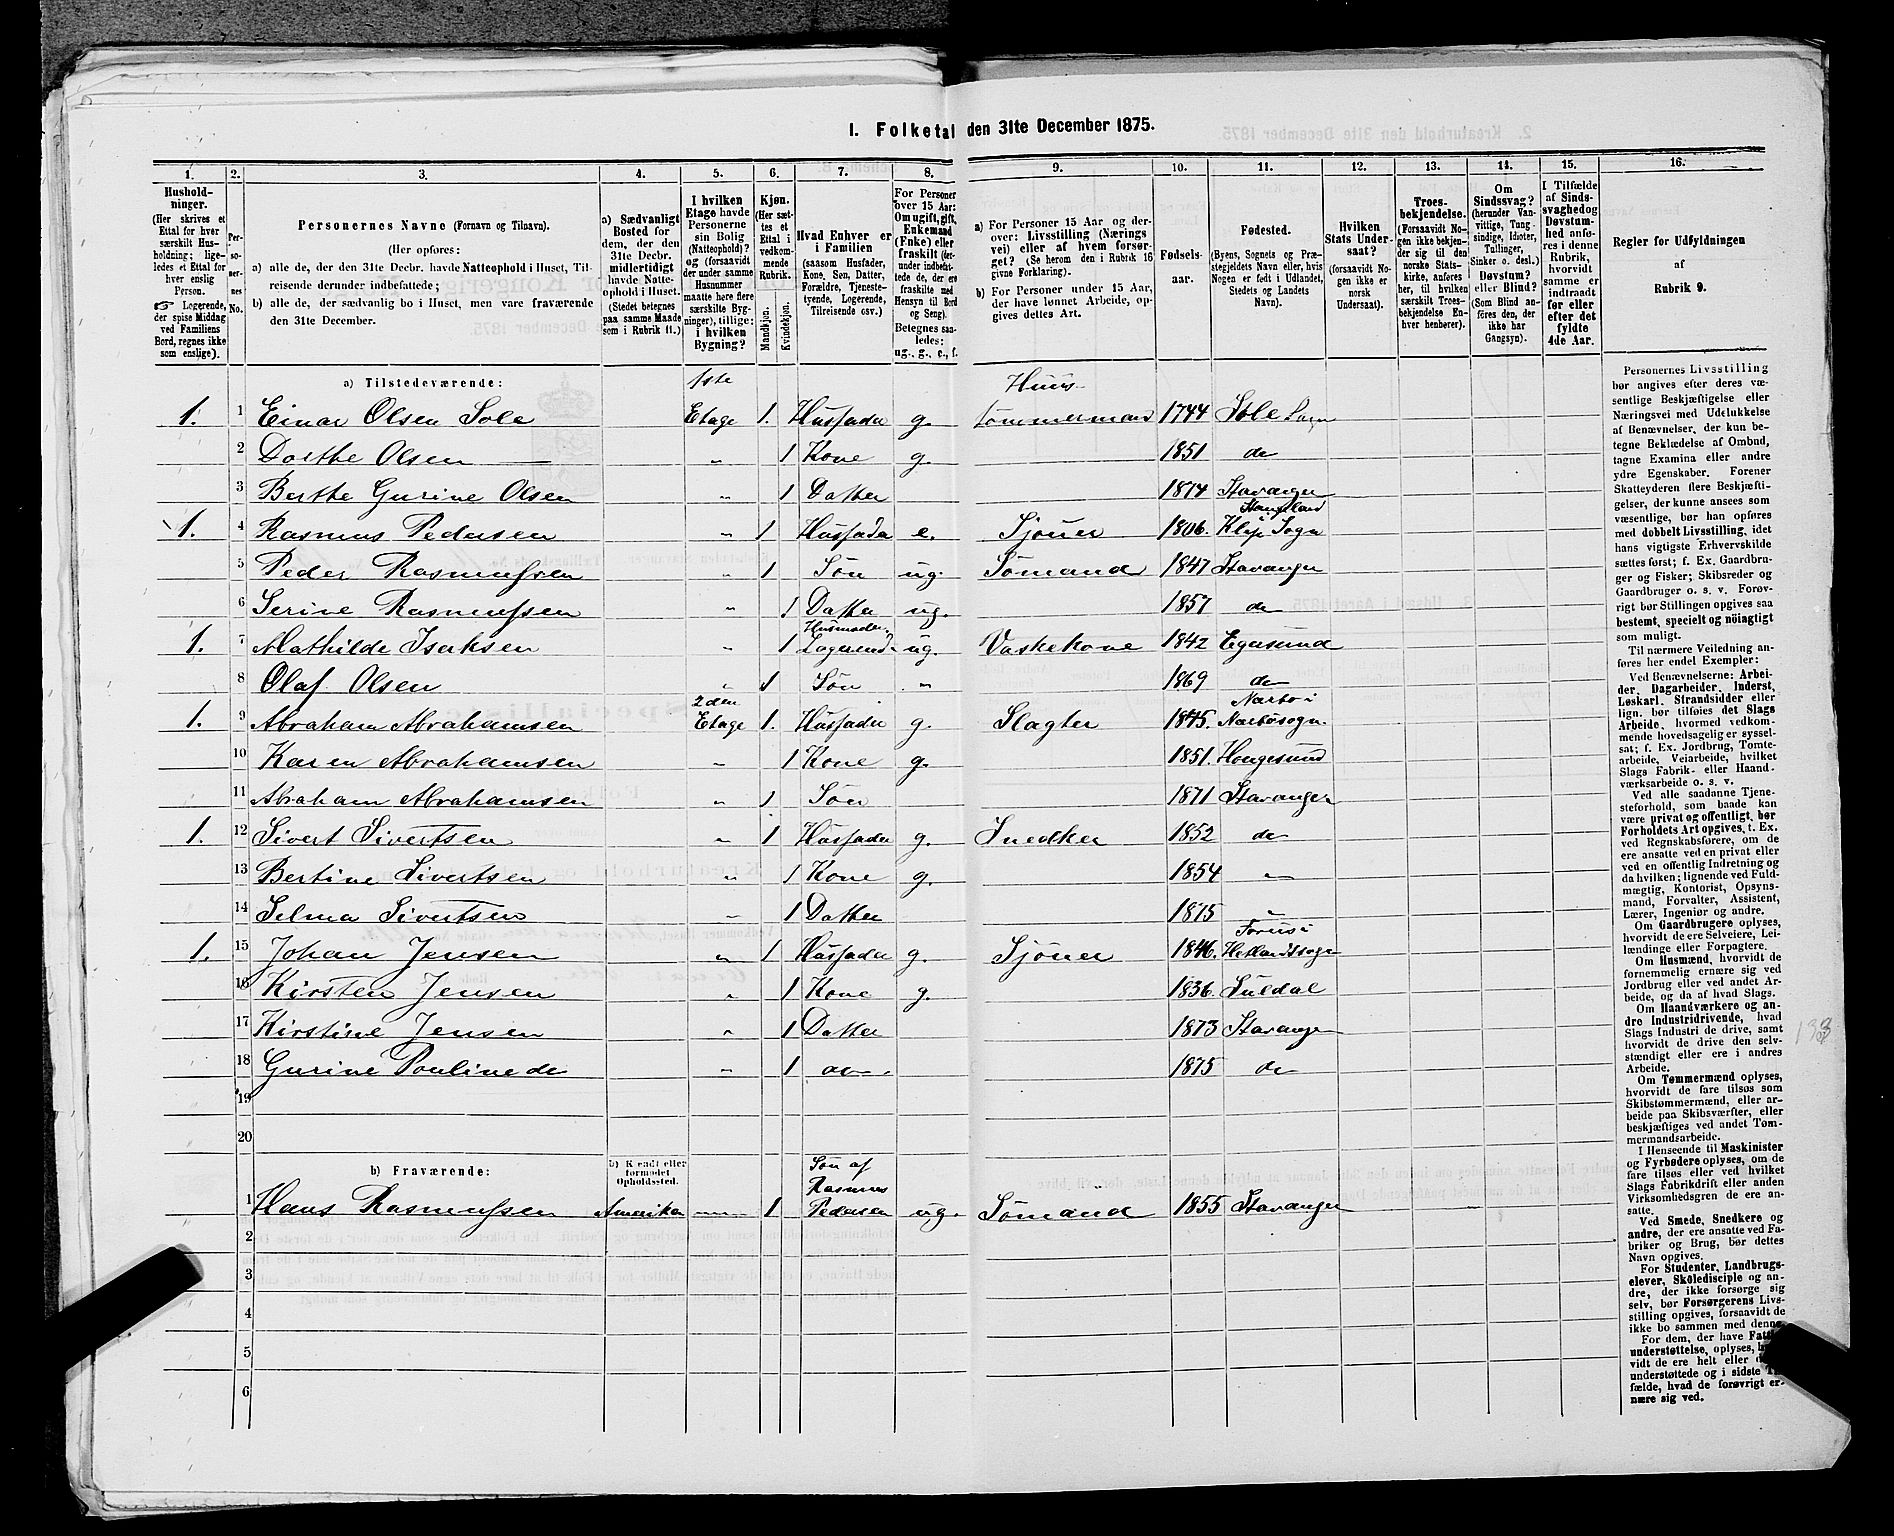 1. Folketal den 31te December 1875.
1. 2. 3. 4. 5. 6. 7. 8. 9. 10. 11. 12. 13. 14. 15. 16.
Hushold-
ninger.
(Her skrives et
Ettal for hver
særskilt Hus-
holdning; lige-
ledes et Ettal for
hver enslig
Person.
☞ Logerende,
der spise Middag
ved Familiens
Bord, regnes ikke
som enslige).
Per-
so-
ner-
nes
No.
Personernes Navne (Fornavn og Tilnavn).
(Her opføres:
a) alle de, der den 31te Decbr. havde Natteophold i Huset, Til-
reisende derunder indbefattede;
b) alle de, der sædvanlig bo i Huset, men vare fraværende
den 31te December.
a) Sædvanligt
Bosted for
dem, der den
31te Decbr.
midlertidigt
havde Natte-
ophold i Huset.
(Stedet betegnes
paa samme Maade
som i Rubrik 11.)
I hvilken
Etage havde
Personerne
sin Bolig
(Natteophold)?
og (forsaavidt
der under samme
Husnummer
maatte høre flere
særskilte Byg-
ninger), tillige:
i hvilken
Bygning?
Kjøn.
(Her sæt-
tes et
Ettal i
vedkom-
mende
Rubrik.
Mandkjøn.
Kvindekjøn.
Hvad Enhver er
i Familien
(saasom Husfader,
Kone, Søn, Datter,
Forældre, Tjeneste-
tyende, Logerende,
Tilreisende osv.)
For Personer
over 15 Aar:
Om ugift, gift,
Enkemand
(Enke) eller
fraskilt (der-
under indbefat-
tede de, der ere
fraskilte med
Hensyn til Bord
og Seng).
Betegnes saa-
ledes:
ug., g., e., f.
a) For Personer 15 Aar og der-
over: Livsstilling (Nærings-
vei) eller af hvem forsør-
get? (Se herom den i Rubrik 16
givne Forklaring).
b) For Personer under 15 Aar,
der have lønnet Arbeide, op-
gives dettes Art.
Fødsels-
aar.
Fødested.
(Byens, Sognets og Præ-
stegjeldets Navn eller, hvis
Nogen er født i Udlandet,
Stedets og Landets
Navn).
Hvilken
Stats Under-
saat?
(forsaavidt No-
gen ikke er
norsk
Undersaat).
Troes-
bekjendelse.
(Forsaavidt No-
gen ikke bekjen-
der sig til den
norske Stats-
kirke, anføres
her, til hvilken
særskilt Troes-
bekjendelse En-
hver henhører).
Om
Sindssvag?
(herunder Van-
vittige, Tung-
sindige, Idioter,
Tullinger,
Sinker o. desl.)
Døvstum?
eller Blind?
(Som Blind an-
føres den, der
ikke har
Gangsyn).
I Tilfælde
af Sinds-
svaghed og
Døvstum-
hed anfø-
res i denne
Rubrik,
hvorvidt
samme er
indtraadt
før eller
efter det
fyldte
4de Aar.
Regler for Udfyldningen
af
Rubrik 9.
a) Tilstedeværende:
1. 1 Einar Olsen Sole 1ste Etage 1. Husfader g. Huus-tømmermand 1744 Sole Sogn
2 Dorthe Olsen „ 1 Kone g. 1851 do
3 Berthe Gurine Olsen „ 1 Datter 1874 Stavanger
1. 4 Rasmus Pedersen „ 1 Husfader e. Sjøuer 1806. Klep Sogn
5 Peder Rasmussen „ 1 Søn ug. Sømand 1847 Stavanger
6 Serine Rasmussen „ 1 Datter ug. 1857 do
1. 7 Mathilde Isaksen „ 1 Husmoder Logerende ug. Vaskekone 1842 Egersund
8 Olaf Olsen „ 1 Søn „ 1869 do
1. 9 Abraham Abrahamsen 2den Etage 1. Husfader g. Slagter 1845. Nærbø i Nærbøsogn.
10 Karen Abrahamsen „ 1 Kone g. 1851. Hougesund
11 Abraham Abrahamsen „ 1 Søn 1871 Stavanger
1. 12 Sivert Sivertsen „ 1 Husfader g. Snedker 1852 do
13 Bertine Sivertsen „ 1 Kone g. 1854 „
14 Selma Sivertsen „ 1 Datter 1875 „
1. 15 Johan Jensen „ 1 Husfader g. Sjøuer 1846. Forus i Hetlandssogn
16 Kirsten Jensen „ 1 Kone g. 1836. Suldal
17 Kirstine Jensen „ 1 Datter 1873 Stavanger
18 Gurine Pouline do „ 1 do 1875 do
19
20
b) Fraværende:
b) Kjendt eller
formodet
Opholdssted.
1 Hans Rasmussen Amerika 1 Søn af Rasmus Pedersen ug. Sømand 1855 Stavanger
2
3
4
5
6
Personernes Livsstilling
bør angives efter deres væ-
sentlige Beskjæftigelse eller
Næringsvei med Udelukkelse
af Benævnelser, der kun be-
tegne Beklædelse af Ombud,
tagne Examina eller andre
ydre Egenskaber. Forener
Skatteyderen flere Beskjæfti-
gelser, der kunne ansees som
væsentlige, bør han opføres
med dobbelt Livsstilling, idet
hans vigtigste Erhvervskilde
sættes først; f. Ex. Gaardbru-
ger og Fisker; Skibsreder og
Gaardbruger o. s. v. Forøv-
rigt bør Stillingen opgives saa
bestemt, specielt og nöiagtigt
som muligt.
Til nærmere Veiledning an-
føres her endel Exempler:
Ved Benævnelserne: Arbei-
der, Dagarbeider, Inderst,
Løskarl, Strandsidder eller
lign. bør tilføies det Slags
Arbeide, hvormed vedkom-
mende hovedsagelig er syssel-
sat; f. Ex. Jordbrug, Tomte-
arbeide, Veiarbeide, hvilket
Slags Fabrik- eller Haand-
værksarbeide o. s. v.
Ved alle saadanne Tjene-
steforhold, som baade kan
være privat og offentligt, bør
Forholdets Art opgives, t. Ex.
ved Regnskabsførere, om de
ere ansatte ved en privat eller
ved en offentlig Indretning og
da hvilken; lignende ved Fuld-
mægtig, Kontorist, Opsyns-
mand, Forvalter, Assistent,
Lærer, Ingeniør og andre.
Om Gaardbrugere oplyses,
hvorvidt de ere Selveiere, Lei-
lændinge eller Forpagtere.
Om Husmænd, hvorvidt de
fornemmelig ernære sig ved
Jordbrug eller ved andet Ar-
beide, og da af hvad Slags.
Om Haandværkere og an-
dre Industridrivende, hvad
Slags Industri de drive, samt
hvorvidt de drive den selv-
stændigt eller ere i andres
Arbeide.
Om Tømmermænd oplyses,
hvorvidt de fare tilsøs som
Skibstømmermænd, eller ar-
beide paa Skibsværfter, eller
beskjæftiges ved andet Tøm-
mermandsarbeide.
I Henseende til Maskinister
og Fyrbødere oplyses, om de
fare tilsøs eller ved hvilket
Slags Fabrikdrift eller anden
Virksomhedsgren de ere an-
satte.
Ved Smede, Snedkere og
andre, der ere ansatte ved Fa-
briker og Brug, bør dettes
Navn opgives.
For Studenter, Landbrugs-
elever, Skoledisciple og an-
dre, der ikke forsørge sig
selv, bør Forsørgerens Livs-
stilling opgives, forsaavidt de
ikke bo sammen med denne.
For dem, der have
understøttelse, oplyses,
vidt de ere helt eller
understøttede og i sidste
fælde, hvad de forøvrigt er-
nære sig ved.